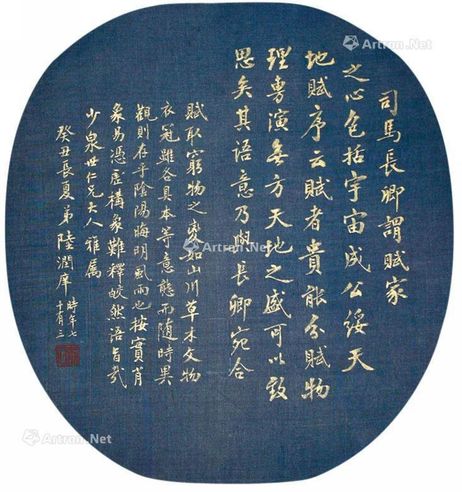 司馬長卿謂賦家
之心包括宇宙成公綏天
地賦序云賦者貴能分賦物
理旉演無方天地之盛可以致
思矣其語意乃與長卿宛合
賦取窮物之變如山川草木文物
衣冠雖各具本等意態而隨時異
觀則存乎陰陽晦明風雨也按實肖
象易憑虛構象難釋皎然語旨哉
少泉世仁兄大人雅屬
癸丑長夏弟陸潤庠時年七十有三
Artron.Net
Artron.Net
Artron.Net
Artron.Net